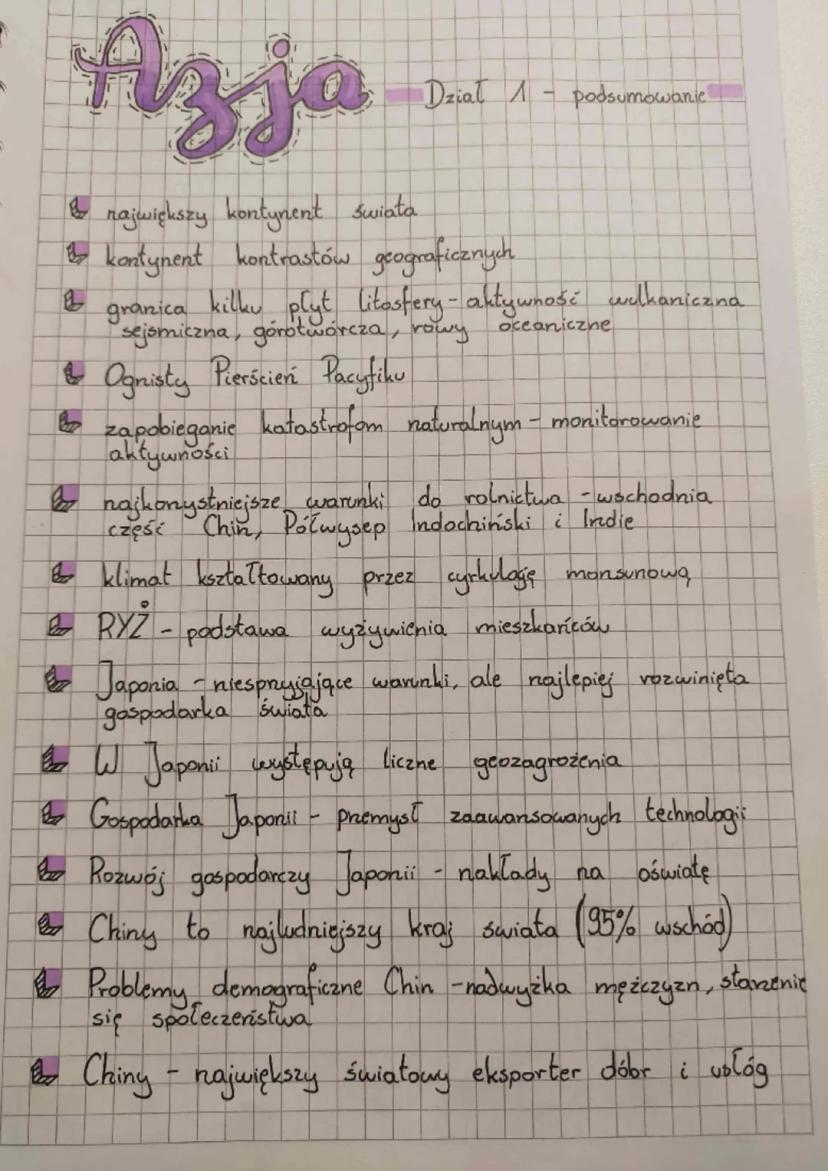 Azja – Dział 1 – podsumowanie
największy kontynent świata
kontynent kontrastów geograficznych
granica kilku płyt litosfery – aktywność wulkaniczna
sejsmiczna, górotwórcza, rowy oceaniczne
Ognisty Pierścień Pacyfiku
zapobieganie katastrofom naturalnym – monitorowanie
aktywności
najkorzystniejsze warunki do rolnictwa – wschodnia
część Chin, Półwysep Indochiński i Indie
klimat kształtowany przez cyrkulację monsunową
RYŻ – podstawa wyżywienia mieszkańców
Japonia – niesprzyjające warunki, ale najlepiej rozwinięta
gospodarka świata
W Japonii występują liczne geozagrożenia
Gospodarka Japonii – przemysł zaawansowanych technologii
Rozwój gospodarczy Japonii – nakłady na oświatę
Chiny to najludniejszy kraj świata (95% wschód)
Problemy demograficzne Chin – nadwyżka mężczyzn, starzenie
się społeczeństwa
Chiny – największy światowy eksporter dóbr i usług